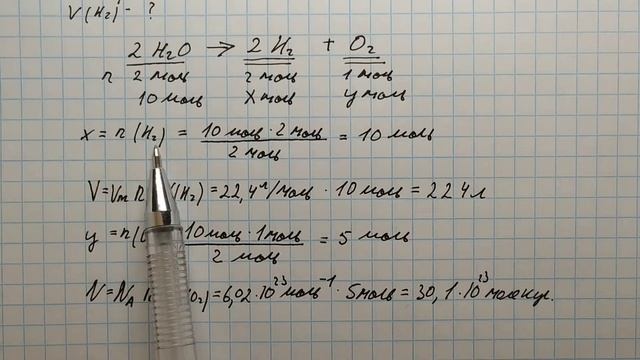 V(H₂) - ?
2 H₂O → 2 H₂ + O₂
n 2 моль 2 моль 1 моль
10 моль x моль y моль
x = n (H₂) = 10 моль · 2 моль / 2 моль = 10 моль
V = Vm n (H₂) = 22,4 л/моль · 10 моль = 224 л
y = n( 10 моль · 1 моль / 2 моль = 5 моль
N = N_A O₂) = 6,02 · 10²³ моль⁻¹ · 5 моль = 30,1 · 10²³ молекул.